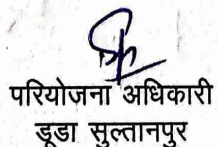 परियोजना अधिकारी
डूडा सुल्तानपुर